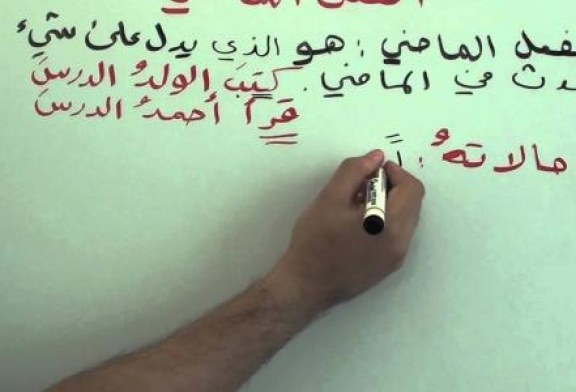 الفعل الماضي
فعل الماضي : هو الذي يدل على شيء
دث في الماضي . كتبَ الولدُ الدرسَ
قرأ أحمدُ الدرسَ
حالاته :